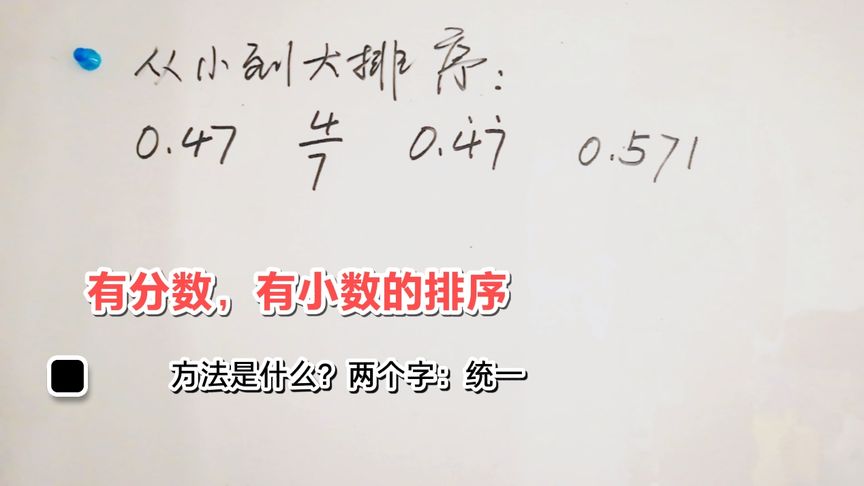 从小到大排序:
0.47 4/7 0.4̇7̇ 0.571
有分数，有小数的排序
方法是什么？两个字：统一